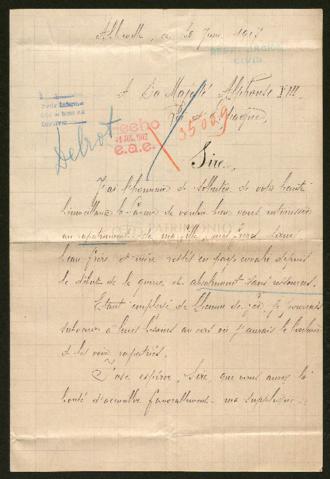 Abbeville, ce 20 Juin 1917
A Sa Majesté Alphonse XIII
Roi d'Espagne,
35029
Delrot
Hecho
e.a.e.
Sire,
J'ai l'honneur de solliciter de votre haute
bienveillance la faveur de vouloir bien vous intéresser
au rapatriement de ma
beau frère et nièce restés en pays envahi depuis
le début de la guerre, et absolument sans ressources.
Etant employé de Chemin de fer, je pourrais
subvenir à leurs besoins au cas où j'aurais le bonheur
de les voir rapatriés.
J'ose espérer, Sire, que vous aurez la
bonté d'accueillir favorablement ma supplique
PATRIMONIO